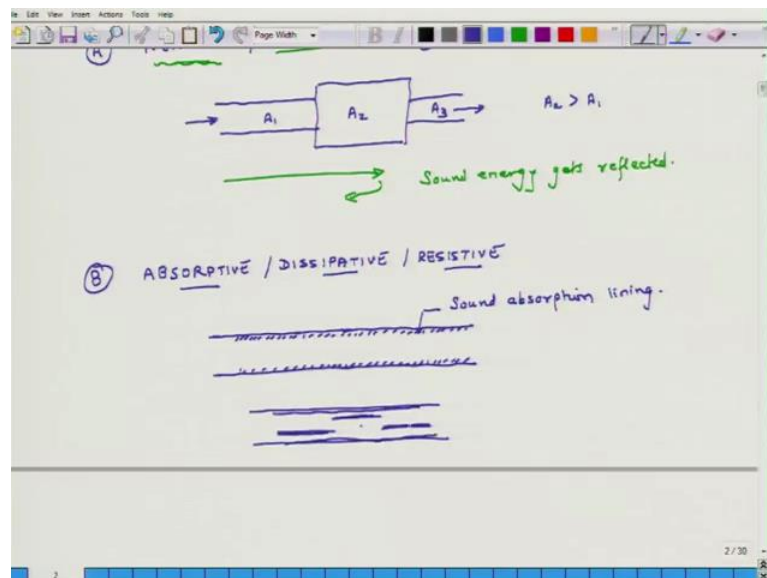 File Edit View Insert Actions Tools Help
Page Width
B I
A
A₁ A₂ A₃ A₂ > A₁
Sound energy gets reflected.
B ABSORPTIVE / DISSIPATIVE / RESISTIVE
Sound absorption lining.
2 / 30
2